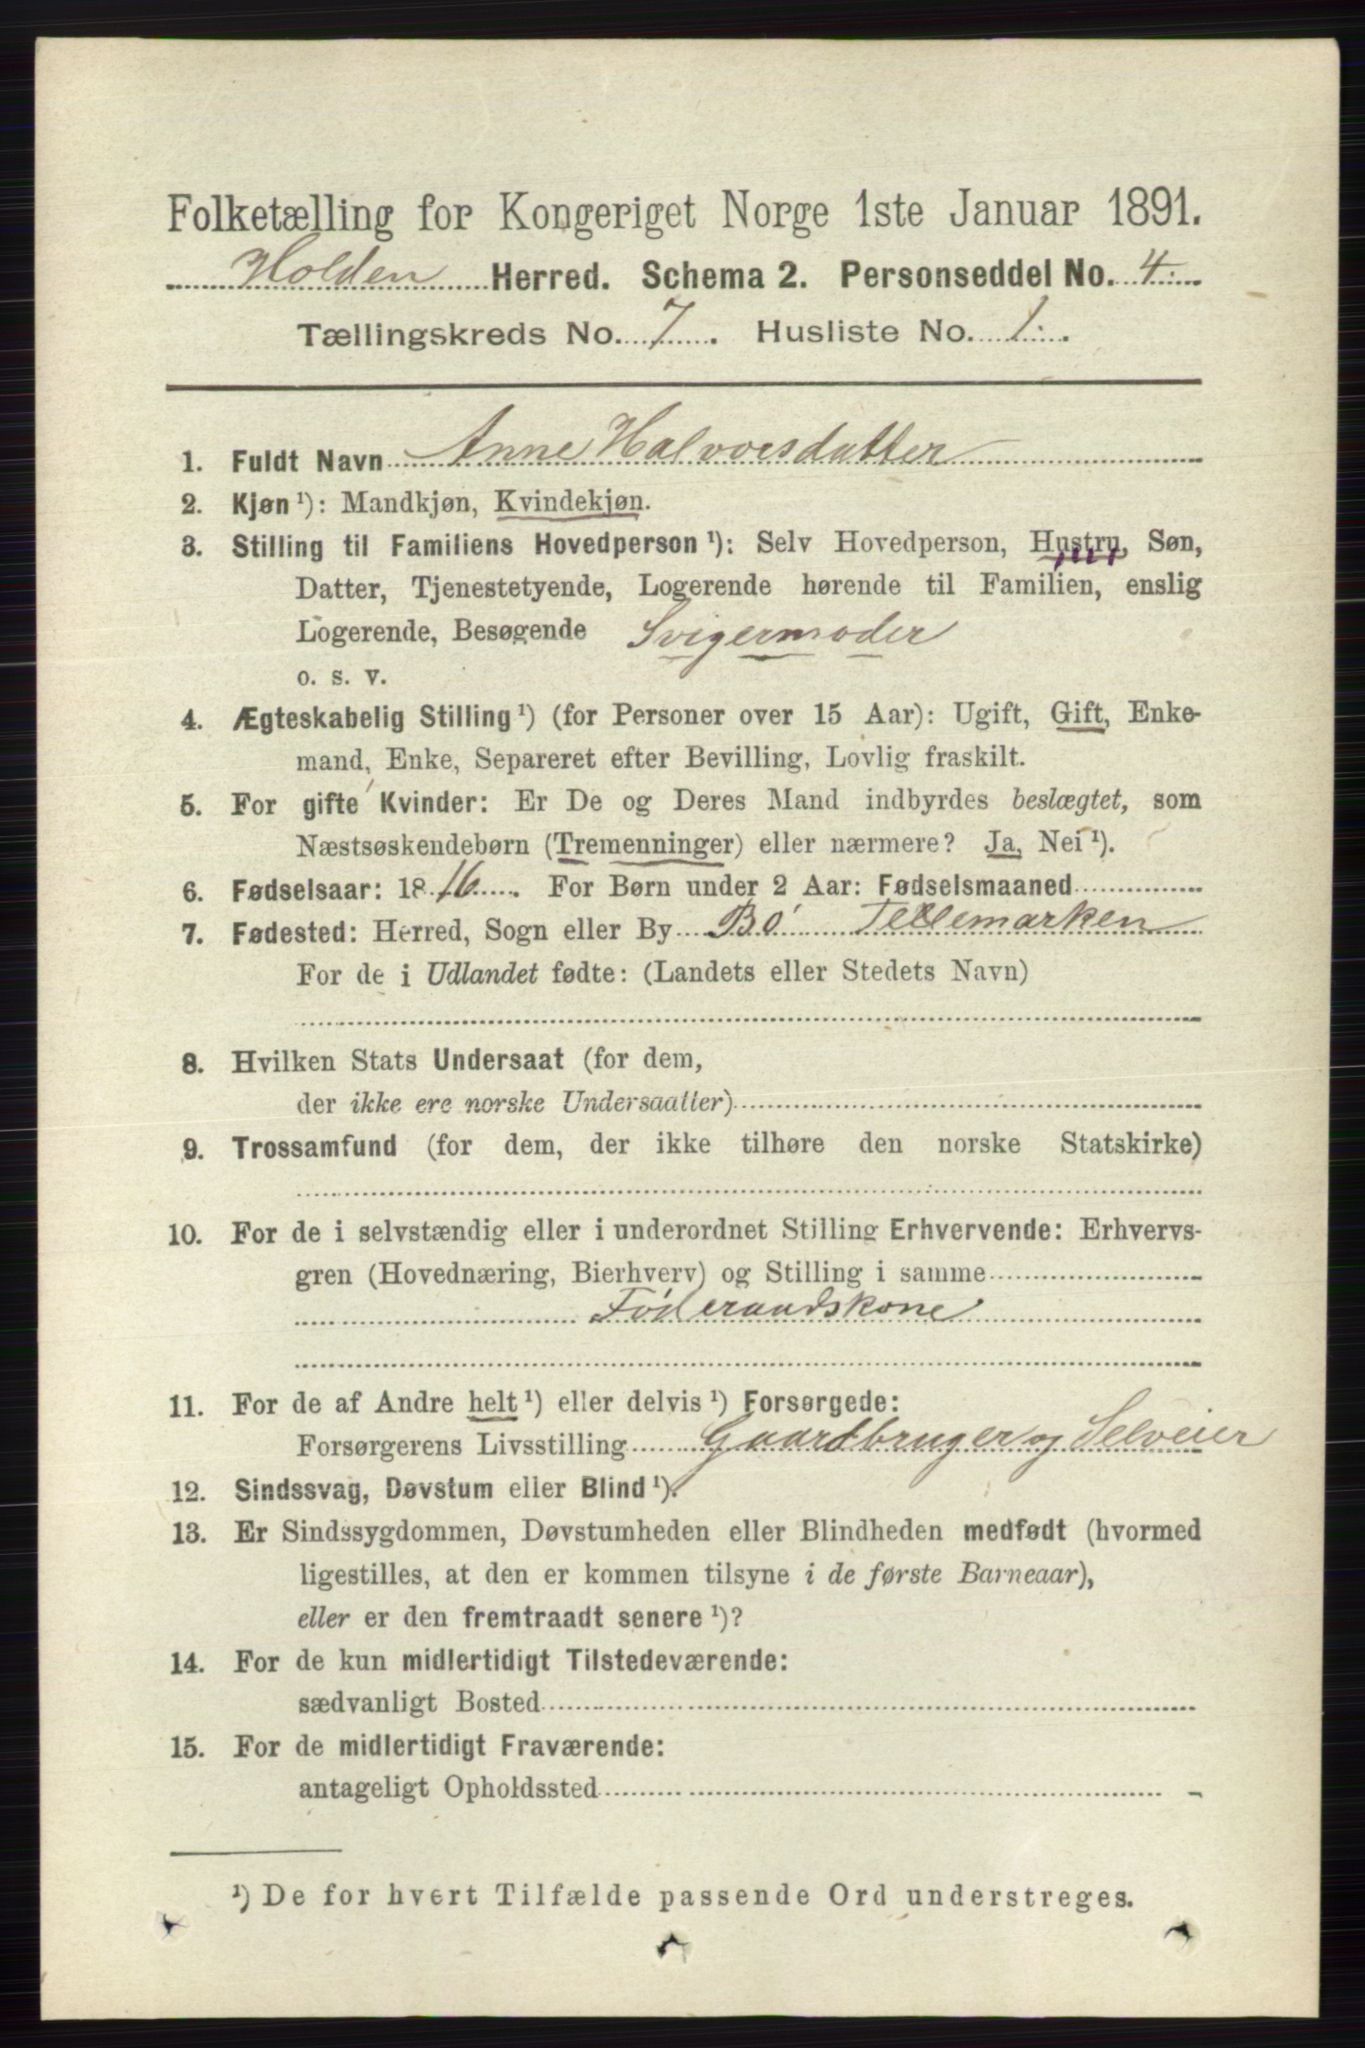 Folketælling for Kongeriget Norge 1ste Januar 1891.
Holden Herred. Schema 2. Personseddel No. 4.
Tællingskreds No. 7. Husliste No. 1.
1. Fuldt Navn Anne Halvorsdatter
2. Kjøn ¹): Mandkjøn, Kvindekjøn.
3. Stilling til Familiens Hovedperson ¹): Selv Hovedperson, Hustru, Søn,
Datter, Tjenestetyende, Logerende hørende til Familien, enslig
Logerende, Besøgende Svigermoder
o. s. v.
4. Ægteskabelig Stilling ¹) (for Personer over 15 Aar): Ugift, Gift, Enke-
mand, Enke, Separeret efter Bevilling, Lovlig fraskilt.
5. For gifte Kvinder: Er De og Deres Mand indbyrdes beslægtet, som
Næstsøskendebørn (Tremenninger) eller nærmere? Ja, Nei ¹).
6. Fødselsaar: 1816. For Børn under 2 Aar: Fødselsmaaned
7. Fødested: Herred, Sogn eller By Bö Tellemarken
For de i Udlandet fødte: (Landets eller Stedets Navn)
8. Hvilken Stats Undersaat (for dem,
der ikke ere norske Undersaatter)
9. Trossamfund (for dem, der ikke tilhøre den norske Statskirke)
10. For de i selvstændig eller i underordnet Stilling Erhvervende: Erhvervs-
gren (Hovednæring, Bierhverv) og Stilling i samme
Föderaadskone
11. For de af Andre helt ¹) eller delvis ¹) Forsørgede:
Forsørgerens Livsstilling Gaardbruger og Selveier
12. Sindssvag, Døvstum eller Blind ¹).
13. Er Sindssygdommen, Døvstumheden eller Blindheden medfødt (hvormed
ligestilles, at den er kommen tilsyne i de første Barneaar),
eller er den fremtraadt senere ¹)?
14. For de kun midlertidigt Tilstedeværende:
sædvanligt Bosted
15. For de midlertidigt Fraværende:
antageligt Opholdssted
¹) De for hvert Tilfælde passende Ord understreges.